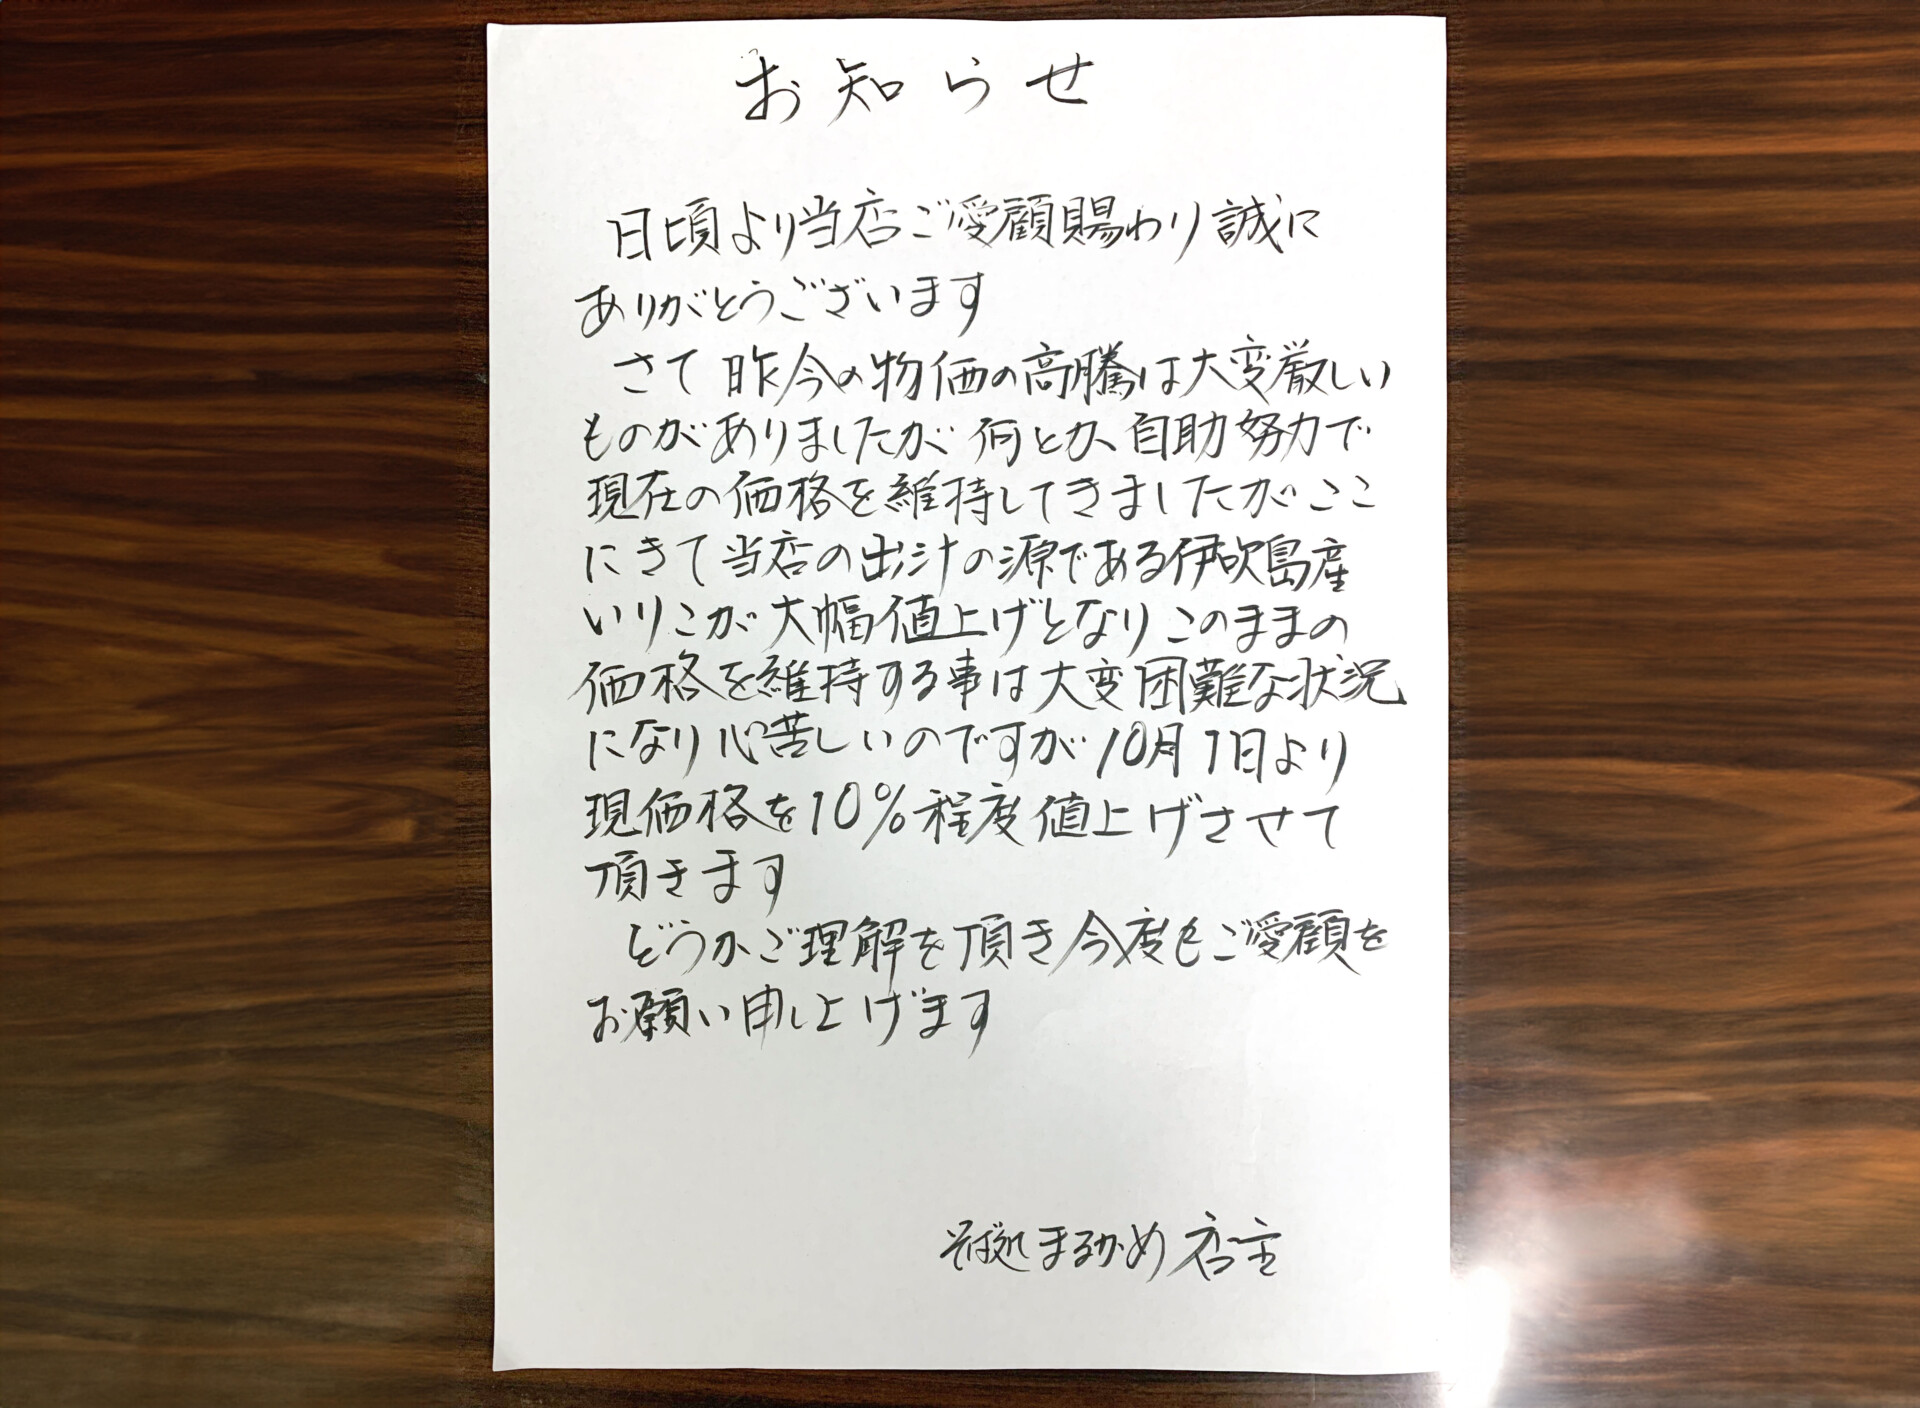 お知らせ
日頃より当店ご愛顧賜わり誠に
ありがとうございます
さて昨今の物価の高騰は大変厳しい
ものがありましたが何とか、自助努力で
現在の価格を維持してきましたがここ
にきて当店の出汁の源である伊吹島産
いりこが大幅値上げとなりこのままの
価格を維持する事は大変困難な状況
になり心苦しいのですが10月1日より
現価格を10%程度値上げさせて
頂きます
どうかご理解を頂き今度もご愛顧を
お願い申し上げます
そば処まるかめ店主